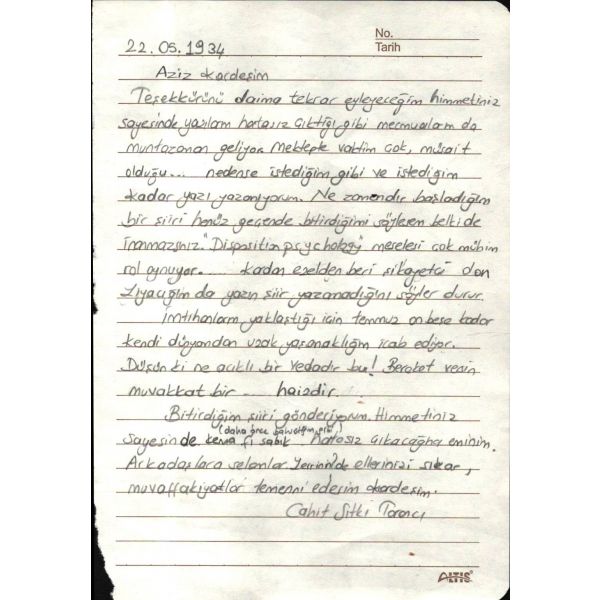 No.
Tarih
22.05.1934
Aziz kardeşim
Teşekkürünü daima tekrar eyleyeceğim himmetiniz
sayesinde yazılarım hatasız çıktığı gibi mecmualarım da
muntazaman geliyor. Mektepte vaktim çok, müsait
olduğu... nedense istediğim gibi ve istediğim
kadar yazı yazamıyorum. Ne zamandır başladığım
bir şiiri henüz geçende bitirdiğimi söylersem belki de
inanmazsınız. "Disposition psychology" meselesi çok mühim
rol oynuyor..... kadar ezelden beri şikayetçi olan
Ziyacığım da yazın şiir yazamadığını söyler durur.
İmtihanların yaklaştığı için temmuz onbeşe kadar
kendi dünyamdan uzak yaşamaklığım icab ediyor.
Düşün ki ne acıklı bir vedadır bu! Bereket versin
muvakkat bir ... haizdir.
Bitirdiğim şiiri gönderiyorum. Himmetiniz
(daha önce gibi)
sayesinde kema fi sabık hatasız çıkacağına eminim.
Arkadaşlara selamlar ellerinizi sıkar,
muvaffakiyatlar temenni ederim kardeşim.
Cahit Sıtkı Tarancı
ALTIS